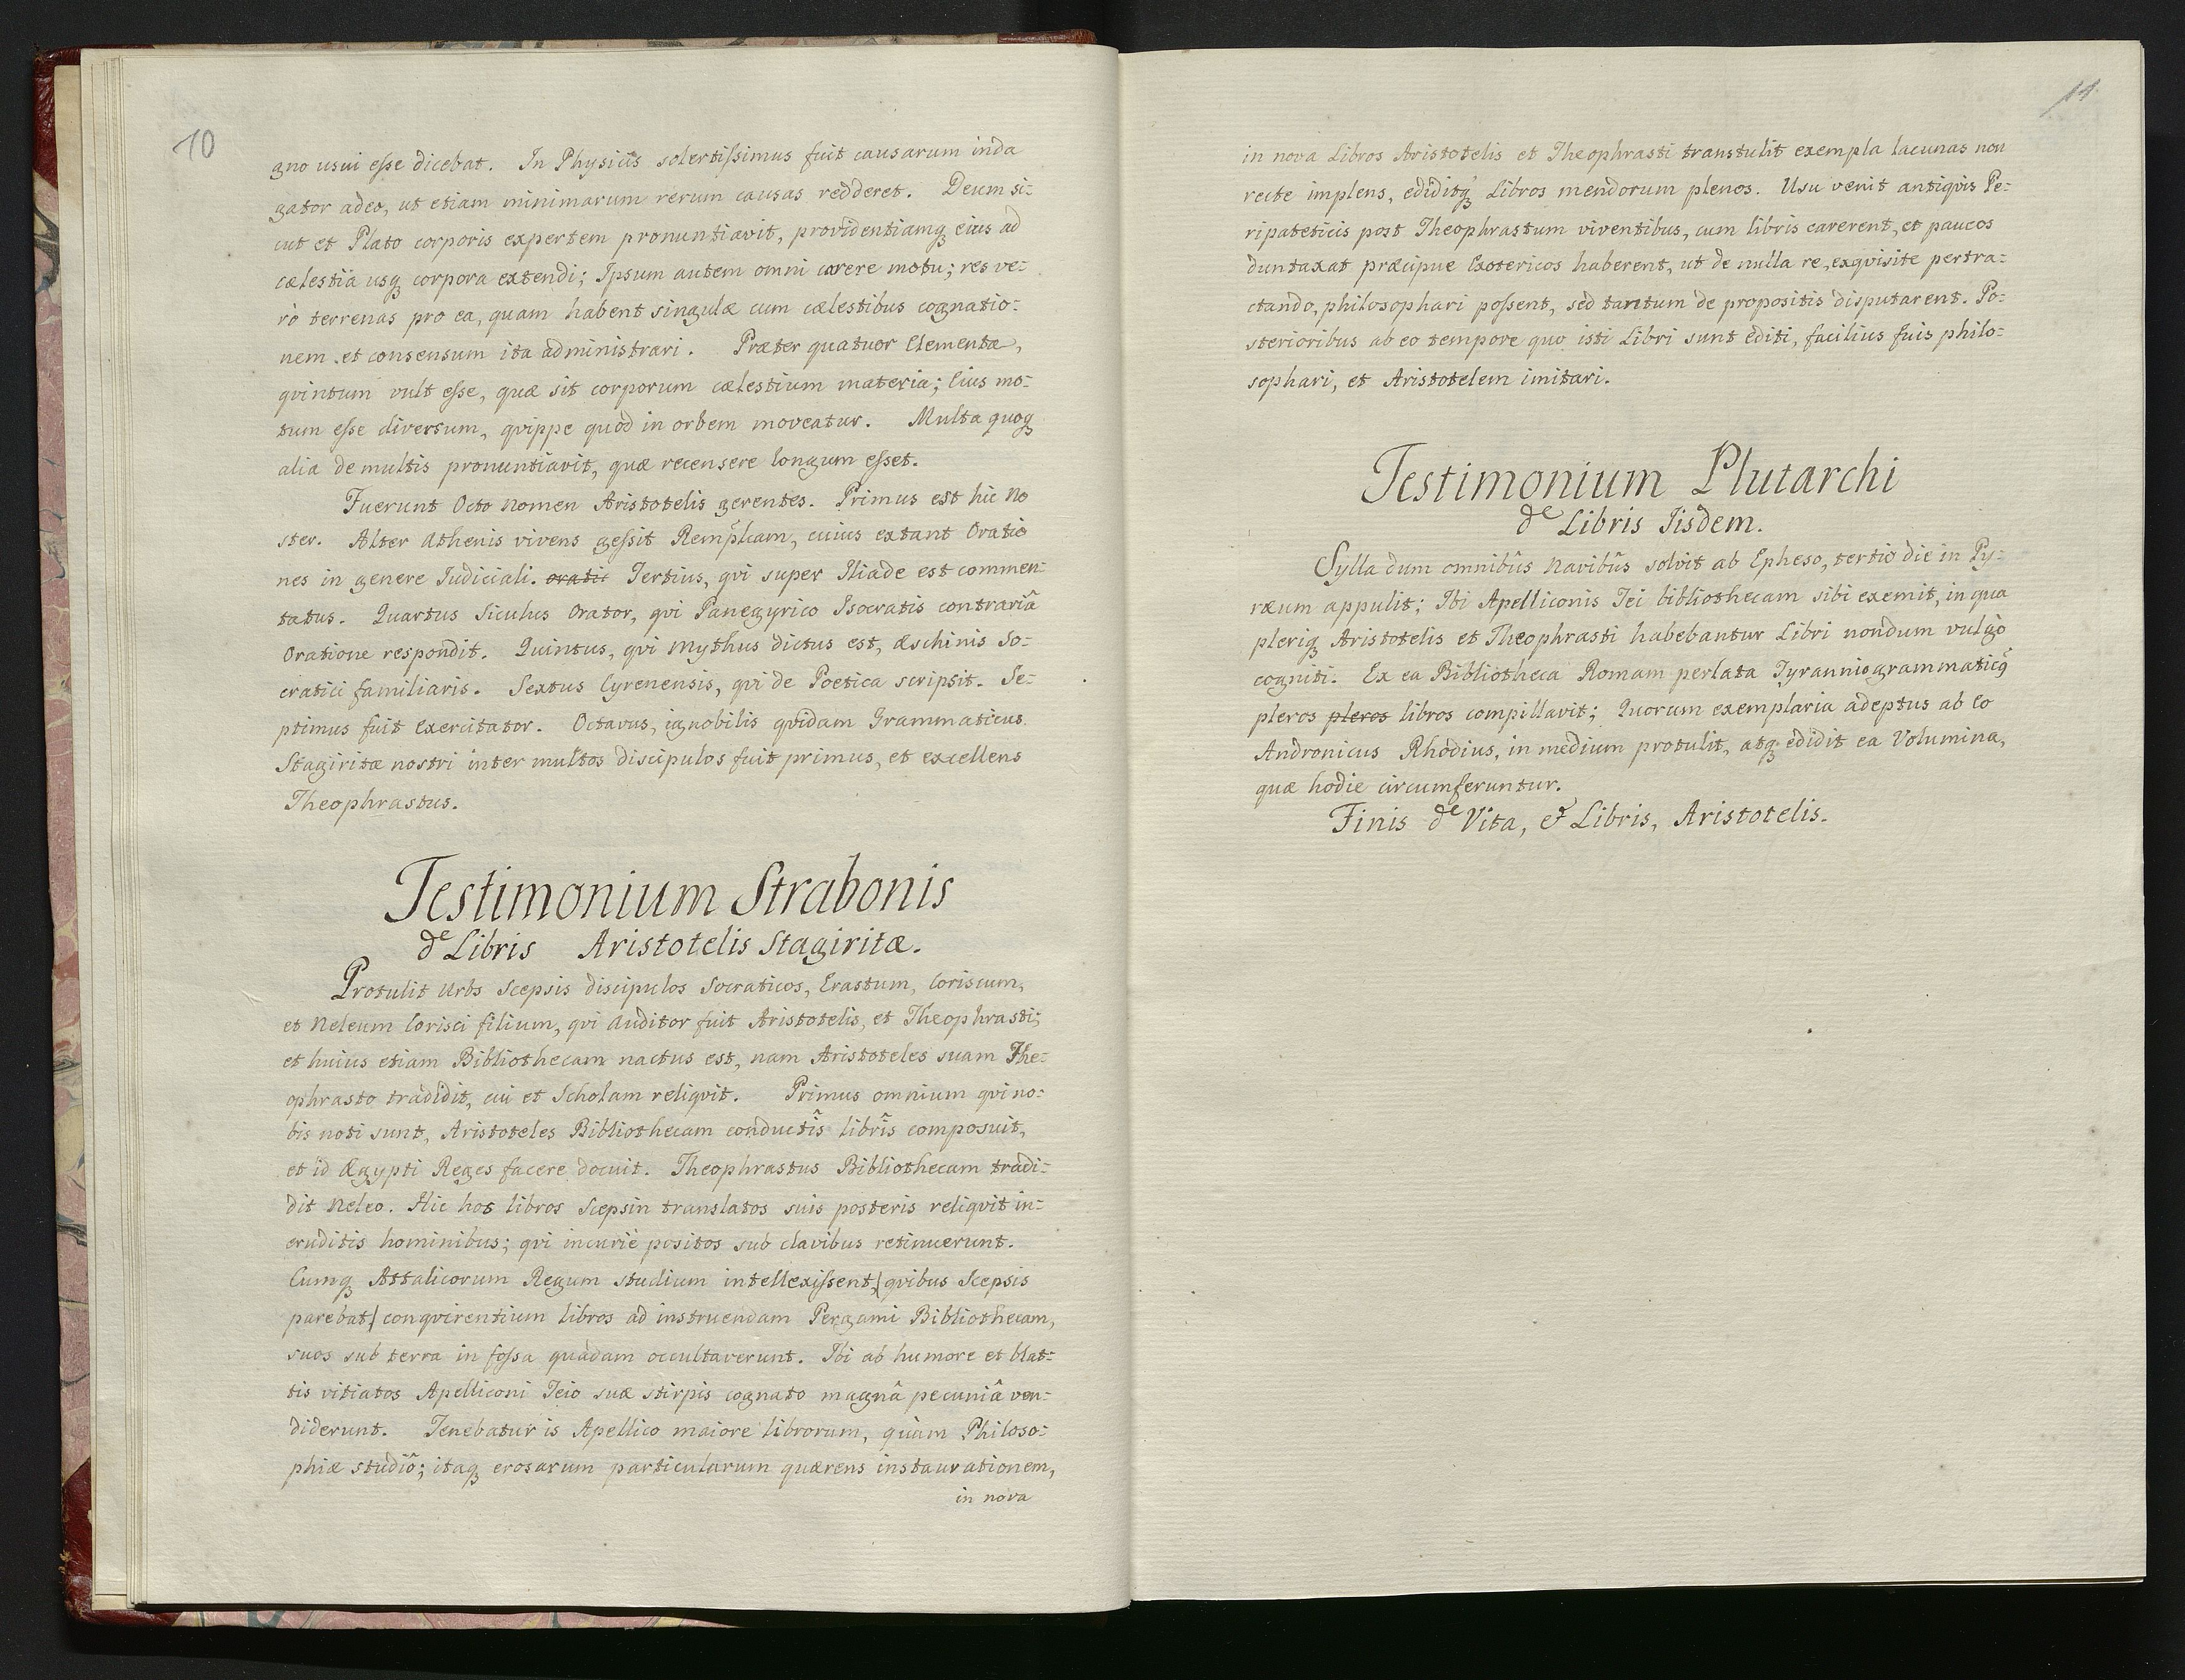 10
gno usui esse dicebat. In Physicis solertissimus fuit causarum inda
gator adeo, ut etiam minimarum rerum causas redderet. Deum si-
cut et Plato corporis expertem pronuntiavit, providentiamq; eius ad
cælestia usq; corpora extendi; Ipsum autem omni carere motu; res ve-
rò terrenas pro ea, quam habent singulæ cum cælestibus cognatio-
nem et consensum ita administrari. Præter quatuor Elementa,
qvintum vult esse, quæ sit corporum cælestium materia; Eius mo-
tum esse diversum, qvippe quòd in orbem moveatur. Multa quoq;
alia de multis pronuntiavit, quæ recensere longum esset.
Fuerunt Octo Nomen Aristotelis gerentes. Primus est hic No
ster. Alter Athenis vivens gessit Rempl̃cam, cuius extant Oratio
nes in genere Iudiciali. oratio Tertius, qvi super Iliade est commen-
tatus. Quartus Siculus Orator, qvi Panegyrico Isocratis contrariâ
Oratione respondit. Quintus, qvi Mythus dictus est, Æschinis So-
cratici familiaris. Sextus Cyrenensis, qvi de Poetica scripsit. Se-
ptimus fuit Exercitator. Octavus, ignobilis qvidam Grammaticus.
Stagiritæ nostri inter multos discipulos fuit primus, et excellens
Theophrastus.
Testimonium Strabonis
de Libris Aristotelis Stagiritæ.
Protulit Urbs Scepsis discipulos Socraticos, Erastum, Coriscum,
et Neleum Corisci filium, qvi Auditor fuit Aristotelis, et Theophrasti;
et huius etiam Bibliothecam nactus est, nam Aristoteles suam The-
ophrasto tradidit, cui et Scholam reliqvit. Primus omnium qvi no-
bis noti sunt, Aristoteles Bibliothecam conductîs librîs composuit,
et id Ægypti Reges facere docuit. Theophrastus Bibliothecam tradi-
dit Neleo. Hic hos libros Scepsin translatos suis posteris reliqvit in-
eruditis hominibus; qvi incuriè positos sub clavibus retinuerunt.
Cumq; Attalicorum Regum studium intellexissent, /qvibus Scepsis
parebat/ conqvirentium libros ad instruendam Pergami Bibliothecam,
suos sub terra in fossa quadam occultaverunt. Ibi ab humore et blat-
tis vitiatos Apelliconi Teio suæ stirpis cognato magnâ pecuniâ ven-
diderunt. Tenebatur is Apellico maiore librorum, quàm Philoso-
phiæ studiô; itaq; erosarum particularum quærens instaurationem,
in nova
11
in nova Libros Aristotelis et Theophrasti transtulit exempla lacunas non
recte implens, ediditq; Libros mendorum plenos. Usu venit antiqvis Pe-
ripateticis post Theophrastum viventibus, cum libris carerent, et paucos
duntaxat præcipue Exotericos haberent, ut de nulla re, exqvisite pertra-
ctando, philosophari possent, sed tantum de propositis disputarent. Po-
sterioribus ab eo tempore quo isti Libri sunt editi, facilius fuis philo-
sophari, et Aristotelem imitari.
Testimonium Plutarchi
de Libris Iisdem.
Sylla dum omnibûs Navibûs solvit ab Epheso, tertio die in Py-
ræum appulit; Ibi Apelliconis Tei bibliothecam sibi exemit, in qua
pleriq; Aristotelis et Theophrasti habebantur Libri nondum vulgo
cogniti. Ex ea Bibliotheca Romam perlata Tyrannio grammaticq̃
pleros pleros libros compillavit; Quorum exemplaria adeptus ab Eo
Andronicus Rhodius, in medium protulit, atq; edidit ea Volumina,
quæ hodie circumferuntur.
Finis de Vita, & Libris, Aristotelis.